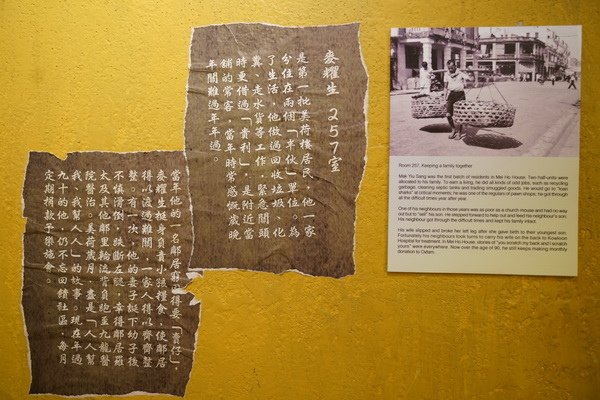 麥耀生 257室
是第一批美荷樓居民,他一家
分住在兩個「半伙」單位。為
了生活,他做過回收垃圾、化
糞、走水貨等工作,緊急關頭
時更借過「貴利」,是附近當
舖的常客,當年時常感慨歲晚
年關難過年年過。
當年他的一名鄰居窮得要「賣仔」,
麥耀生挺身負責小孩糧食,使鄰居
得以渡過難關,一家人得以齊齊整
整。有一次,他的妻子誕下幼子後
不慎滑倒,跌斷左腿,幸得鄰居羅
太及其他鄰里輪流背負她至九龍醫
院醫治。美荷歲月,盡是「人人幫
我、我幫人人」的故事。現在年過
九十的他,仍不忘回饋社區,每月
定期捐款予樂施會。
Room 257, Keeping a family together
Mak Yiu Sang was the first batch of residents in Mei Ho House. Two half-units were
allocated to his family. To earn a living, he did all kinds of odd jobs, such as recycling
garbage, cleaning septic tanks and trading smuggled goods. He would go to "loan
sharks" at critical moments; he was one of the regulars of pawn shops. He got through
all the difficult times year after year.
One of his neighbours in those years was as poor as a church mouse and had no way
out but to "sell" his son. He stepped forward to help out and feed his neighbour's son.
His neighbour got through the difficult times and kept his family intact.
His wife slipped and broke her left leg after she gave birth to their youngest son.
Fortunately his neighbours took turns to carry his wife on the back to Kowloon
Hospital for treatment. In Mei Ho House, stories of "you scratch my back and I scratch
yours" were everywhere. Now over the age of 90, he still keeps making monthly
donation to Oxfam.